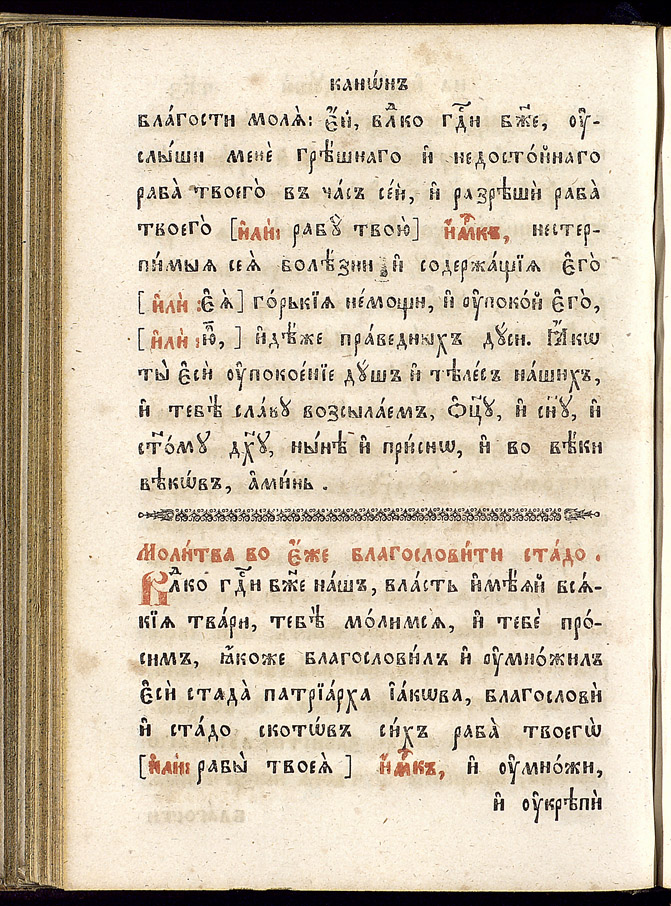 канѡ́нъ
бла́гости молѧ̀: є҆́й, влⷣко гдⷭ҇и бж҃е, ѹ҆-
слы́ши менѐ грѣ́шнаго и҆ недосто́йнаго
раба̀ твоего̀ въ ча́съ се́й, и҆ разрѣшѝ раба̀
твоего̀ [и҆лѝ: рабꙋ̀ твою̀] и҆м҃къ, нестер-
пи́мыѧ сеѧ̀ болѣ́зни и҆ содержа́щїѧ є҆го̀
[и҆лѝ: є҆ѧ̀] го́рькїѧ не́мощи, и҆ ѹ҆поко́й є҆го̀,
[и҆лѝ: ю҆̀,] и҆дѣ́же пра́ведныхъ дꙋ́си. Ꙗ҆́кѡ
ты̀ є҆сѝ ѹ҆покое́нїе дꙋ́шъ и҆ тѣле́съ на́шихъ,
и҆ тебѣ̀ сла́вꙋ возсыла́емъ, ѻ҆ц҃ꙋ̀, и҆ сн҃ꙋ, и҆
ст҃о́мꙋ дх҃ꙋ, ны́нѣ и҆ при́снѡ, и҆ во вѣ́ки
вѣкѡ́въ, а҆ми́нь.
Моли́тва во є҆́же благослови́ти ста́до.
Влⷣко гдⷭ҇и бж҃е на́шъ, вла́сть и҆мѣ́ѧй всѧ́-
кїѧ тва́ри, тебѣ̀ мо́лимсѧ, и҆ тебѐ про́-
симъ, ꙗ҆́коже благослови́лъ и҆ ѹ҆мно́жилъ
є҆сѝ стада̀ патрїа́рха і҆а́кѡва, благословѝ
и҆ ста́до скотѡ́въ си́хъ раба̀ твоегѡ̀
[и҆лѝ: рабы̀ твоеѧ̀] и҆м҃къ, и҆ ѹ҆мно́жи,
и҆ ѹ҆крѣпѝ